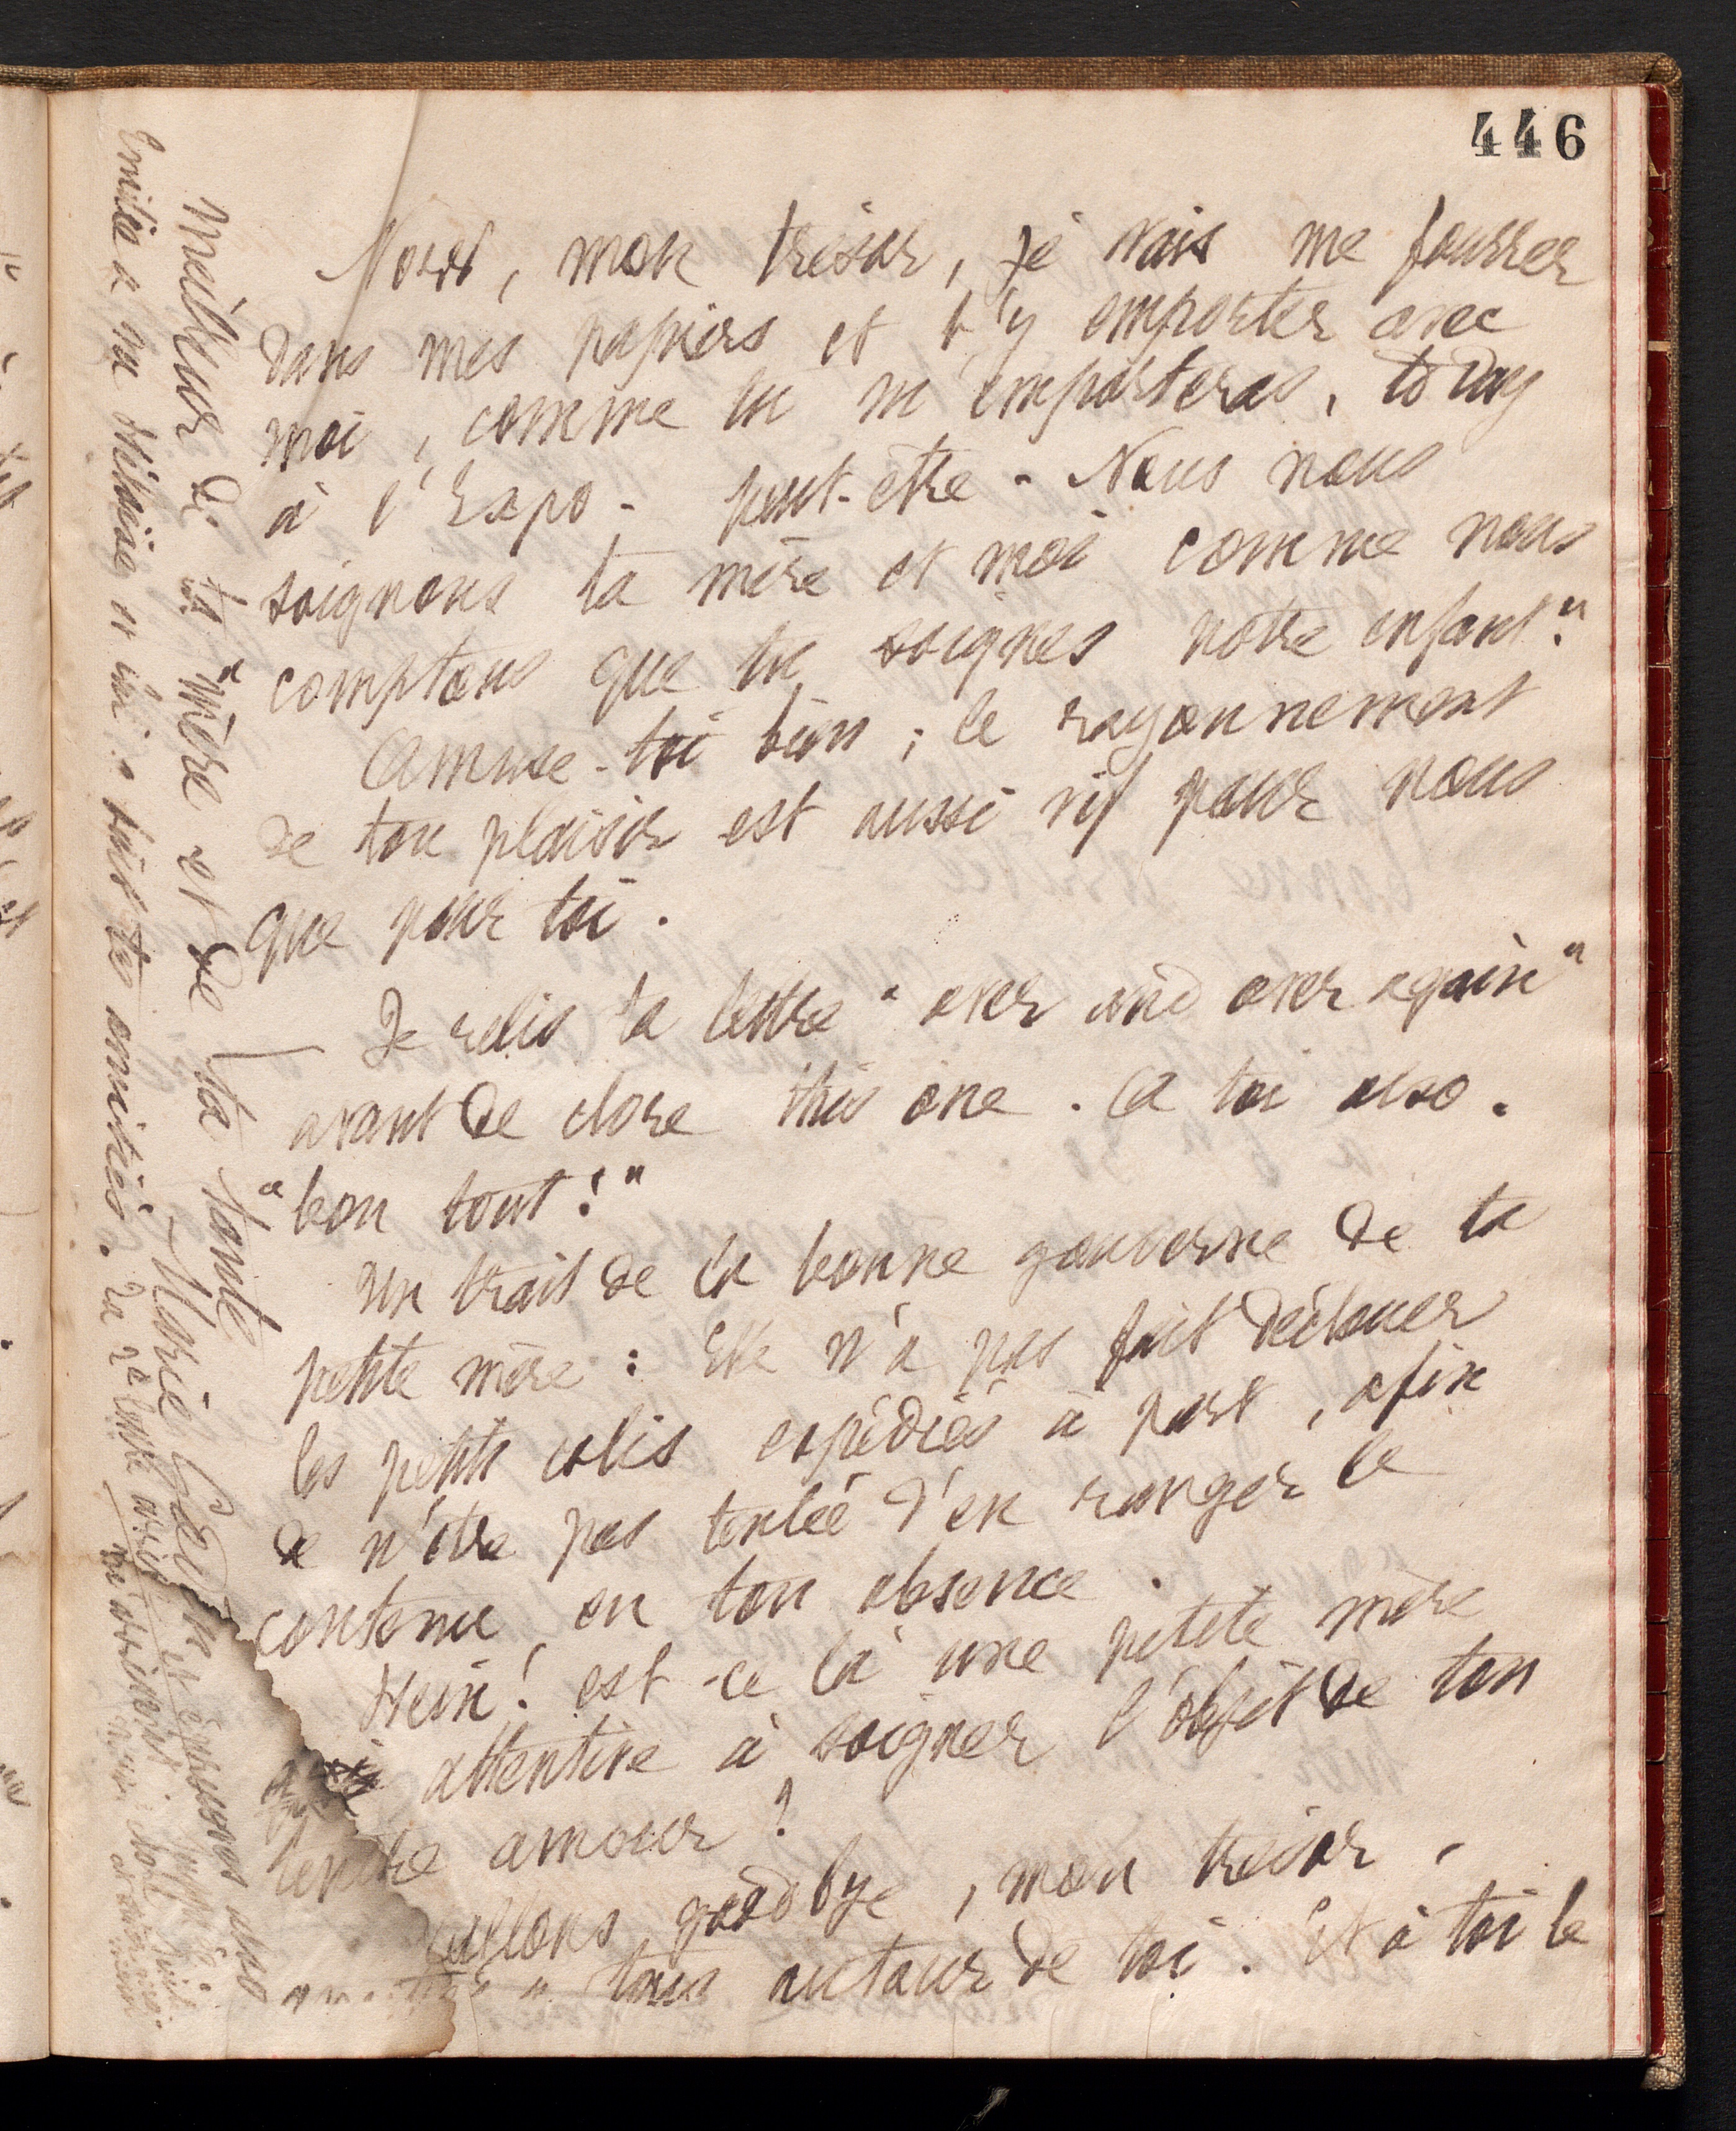 446
mon trésor, je vais me fourrer
dans mes papiers et t'y emporter avec
moi, comme tu m'emporteras, to day
à l'Expo - peut-être - Nous nous
soignons ta mère et moi comme nous
comptons que tu soignes notre enfant."
Amuse-toi bien ; le rayonnement
de ton plaisir est aussi vif pour nous
que pour toi.
Je relis ta lettre "over and over again"
avant de clore this one. A toi also.
"bon tout !"
Un trait de la bonne gouverne de ta
petite mère : Elle n'a pas fait déclouer
les petits colis expédiés à part, afin
de n'être pas tentée d'en ranger le
contenu en ton absence.
Hein ! est-ce là une petite mère
attentive à soigner l'objet de ton
tendre amour ?
allons goodbye, mon trésor,
à tous autour de toi. Et à toi le
meilleur de ta "mère et de ta tante
Marie
amitiés.